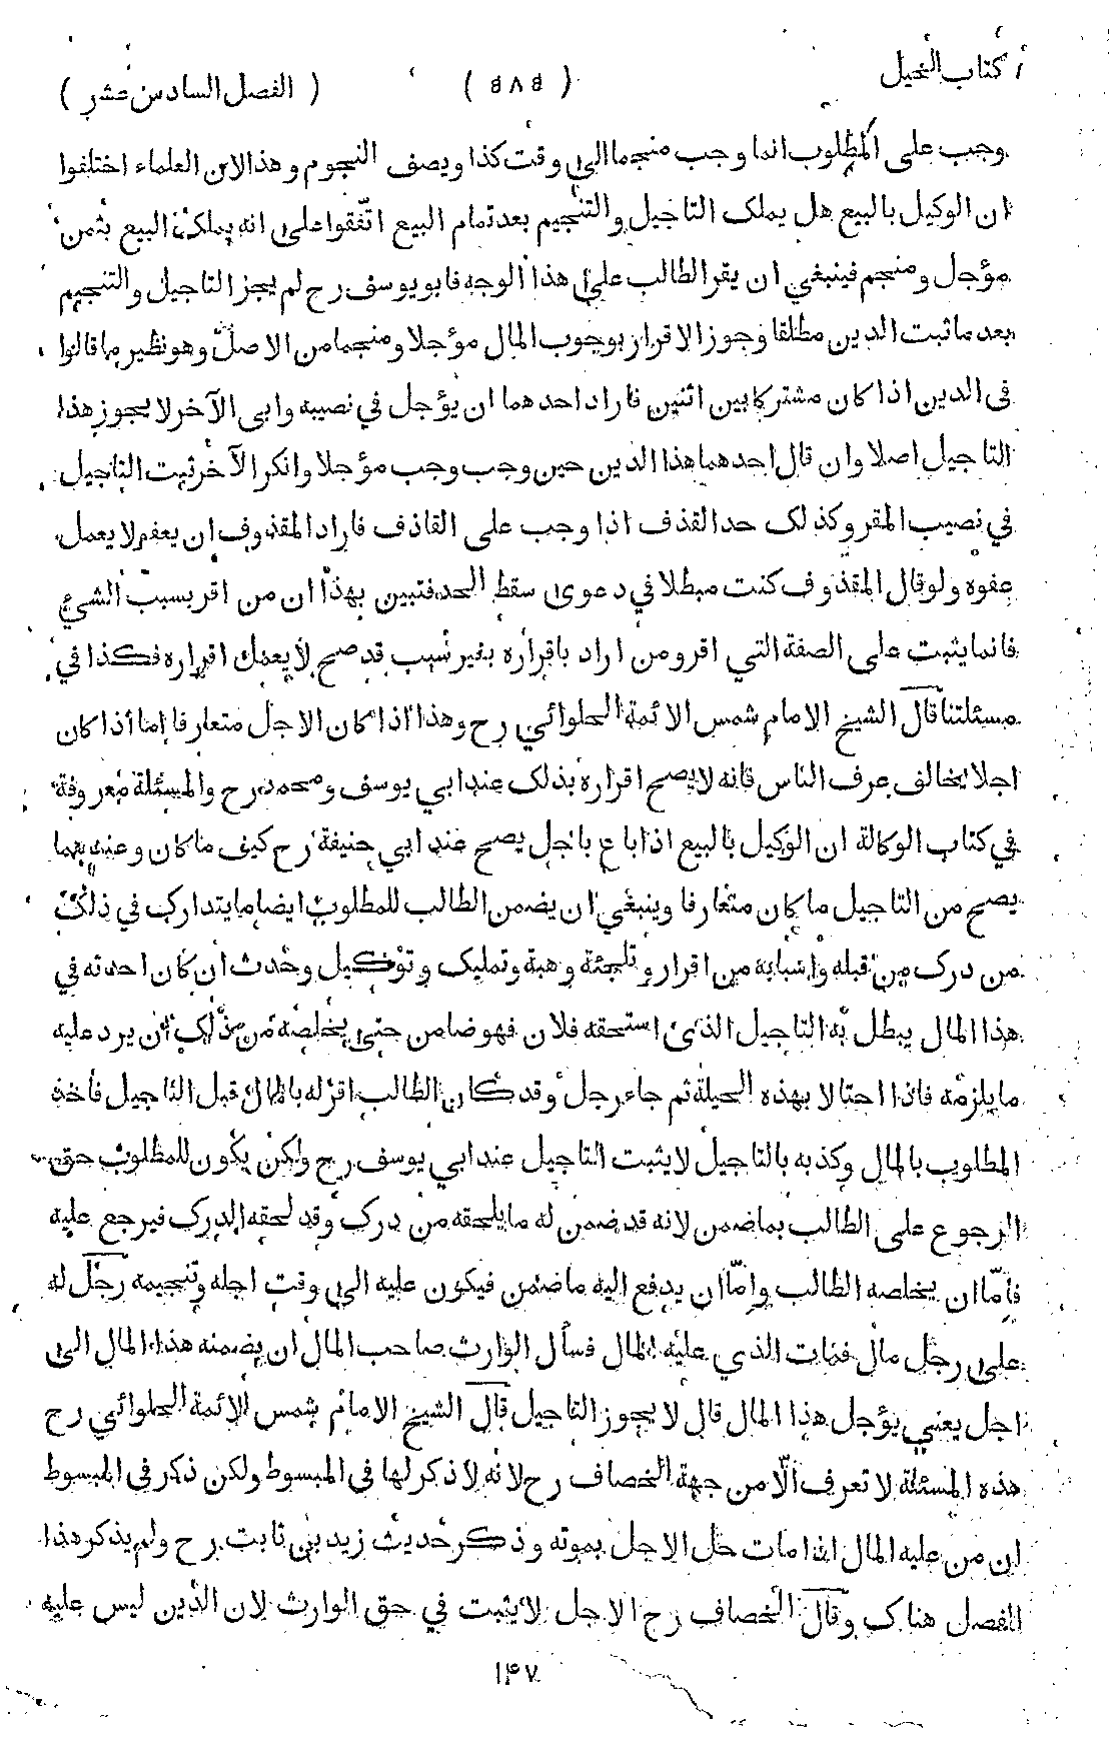 كتاب الحيل
( ٥٨٥ )
( الفصل السادس عشر )
وجب على المطلوب انما وجب منجما الى وقت كذا ويصف النجوم وهذا لان العلماء اختلفوا
ان الوكيل بالبيع هل يملك التاجيل والتنجيم بعد تمام البيع اتفقوا على انه يملك البيع بثمن
مؤجل ومنجم فينبغي ان يقر الطالب على هذا الوجه فابو يوسف رح لم يجز التاجيل والتنجيم
بعد ما ثبت الدين مطلقا وجوز الاقرار بوجوب المال مؤجلا ومنجما من الاصل وهو نظير ما قالوا
فى الدين اذا كان مشتركا بين اثنين فاراد احدهما ان يؤجل في نصيبه وابى الآخر لا يجوز هذا
التاجيل اصلا وان قال احدهما هذا الدين حين وجب وجب مؤجلا وانكر الآخر ثبت التاجيل
في نصيب المقر وكذلك حد القذف اذا وجب على القاذف فاراد المقذوف ان يعفو لا يعمل
عفوه ولو قال المقذوف كنت مبطلا في دعوى سقط الحد فتبين بهذا ان من اقر بسبب الشيء
فانما يثبت على الصفة التي اقر ومن اراد باقراره بغير سبب قد صح لا يعمل اقراره فكذا في
مسئلتنا قال الشيخ الامام شمس الائمة الحلوائي رح وهذا اذا كان الاجل متعارفا اما اذا كان
اجلا يخالف عرف الناس فانه لا يصح اقراره بذلك عند ابي يوسف ومحمد رح والمسئلة معروفة
في كتاب الوكالة ان الوكيل بالبيع اذا باع باجل يصح عند ابي حنيفة رح كيف ما كان وعندهما
يصح من التاجيل ما كان متعارفا وينبغي ان يضمن الطالب للمطلوب ايضا ما يتدارك في ذلك
من درك من قبله واسبابه من اقرار وتلجئة وهبة وتمليك وتوكيل وحدث ان كان احدثه في
هذا المال يبطل به التاجيل الذى استحقه فلان فهو ضامن حتى يخلصه من ذلك ان يرد عليه
ما يلزمه فاذا احتالا بهذه الحيلة ثم جاء رجل وقد كان الطالب اقر له بالمال قبل التاجيل فاخذ
المطلوب بالمال وكذبه بالتاجيل لا يثبت التاجيل عند ابي يوسف رح ولكن يكون للمطلوب حق
الرجوع على الطالب بما ضمن لانه قد ضمن له ما يلحقه من درك وقد لحقه الدرك فيرجع عليه
فاما ان يخلصه الطالب واما ان يدفع اليه ما ضمن فيكون عليه الى وقت اجله وتنجيمه رجل له
على رجل مال فمات الذي عليه المال فسأل الوارث صاحب المال ان يضمنه هذا المال الى
اجل يعني يؤجل هذا المال قال لا يجوز التاجيل قال الشيخ الامام شمس الائمة الحلوائي رح
هذه المسئلة لا تعرف الا من جهة الخصاف رح لانه لا ذكر لها فى المبسوط ولكن ذكر فى المبسوط
ان من عليه المال اذا مات حل الاجل بموته وذكر حديث زيد بن ثابت رح ولم يذكر هذا
الفصل هناك وقال الخصاف رح الاجل لا يثبت في حق الوارث لان الدين ليس عليه
١٤٧